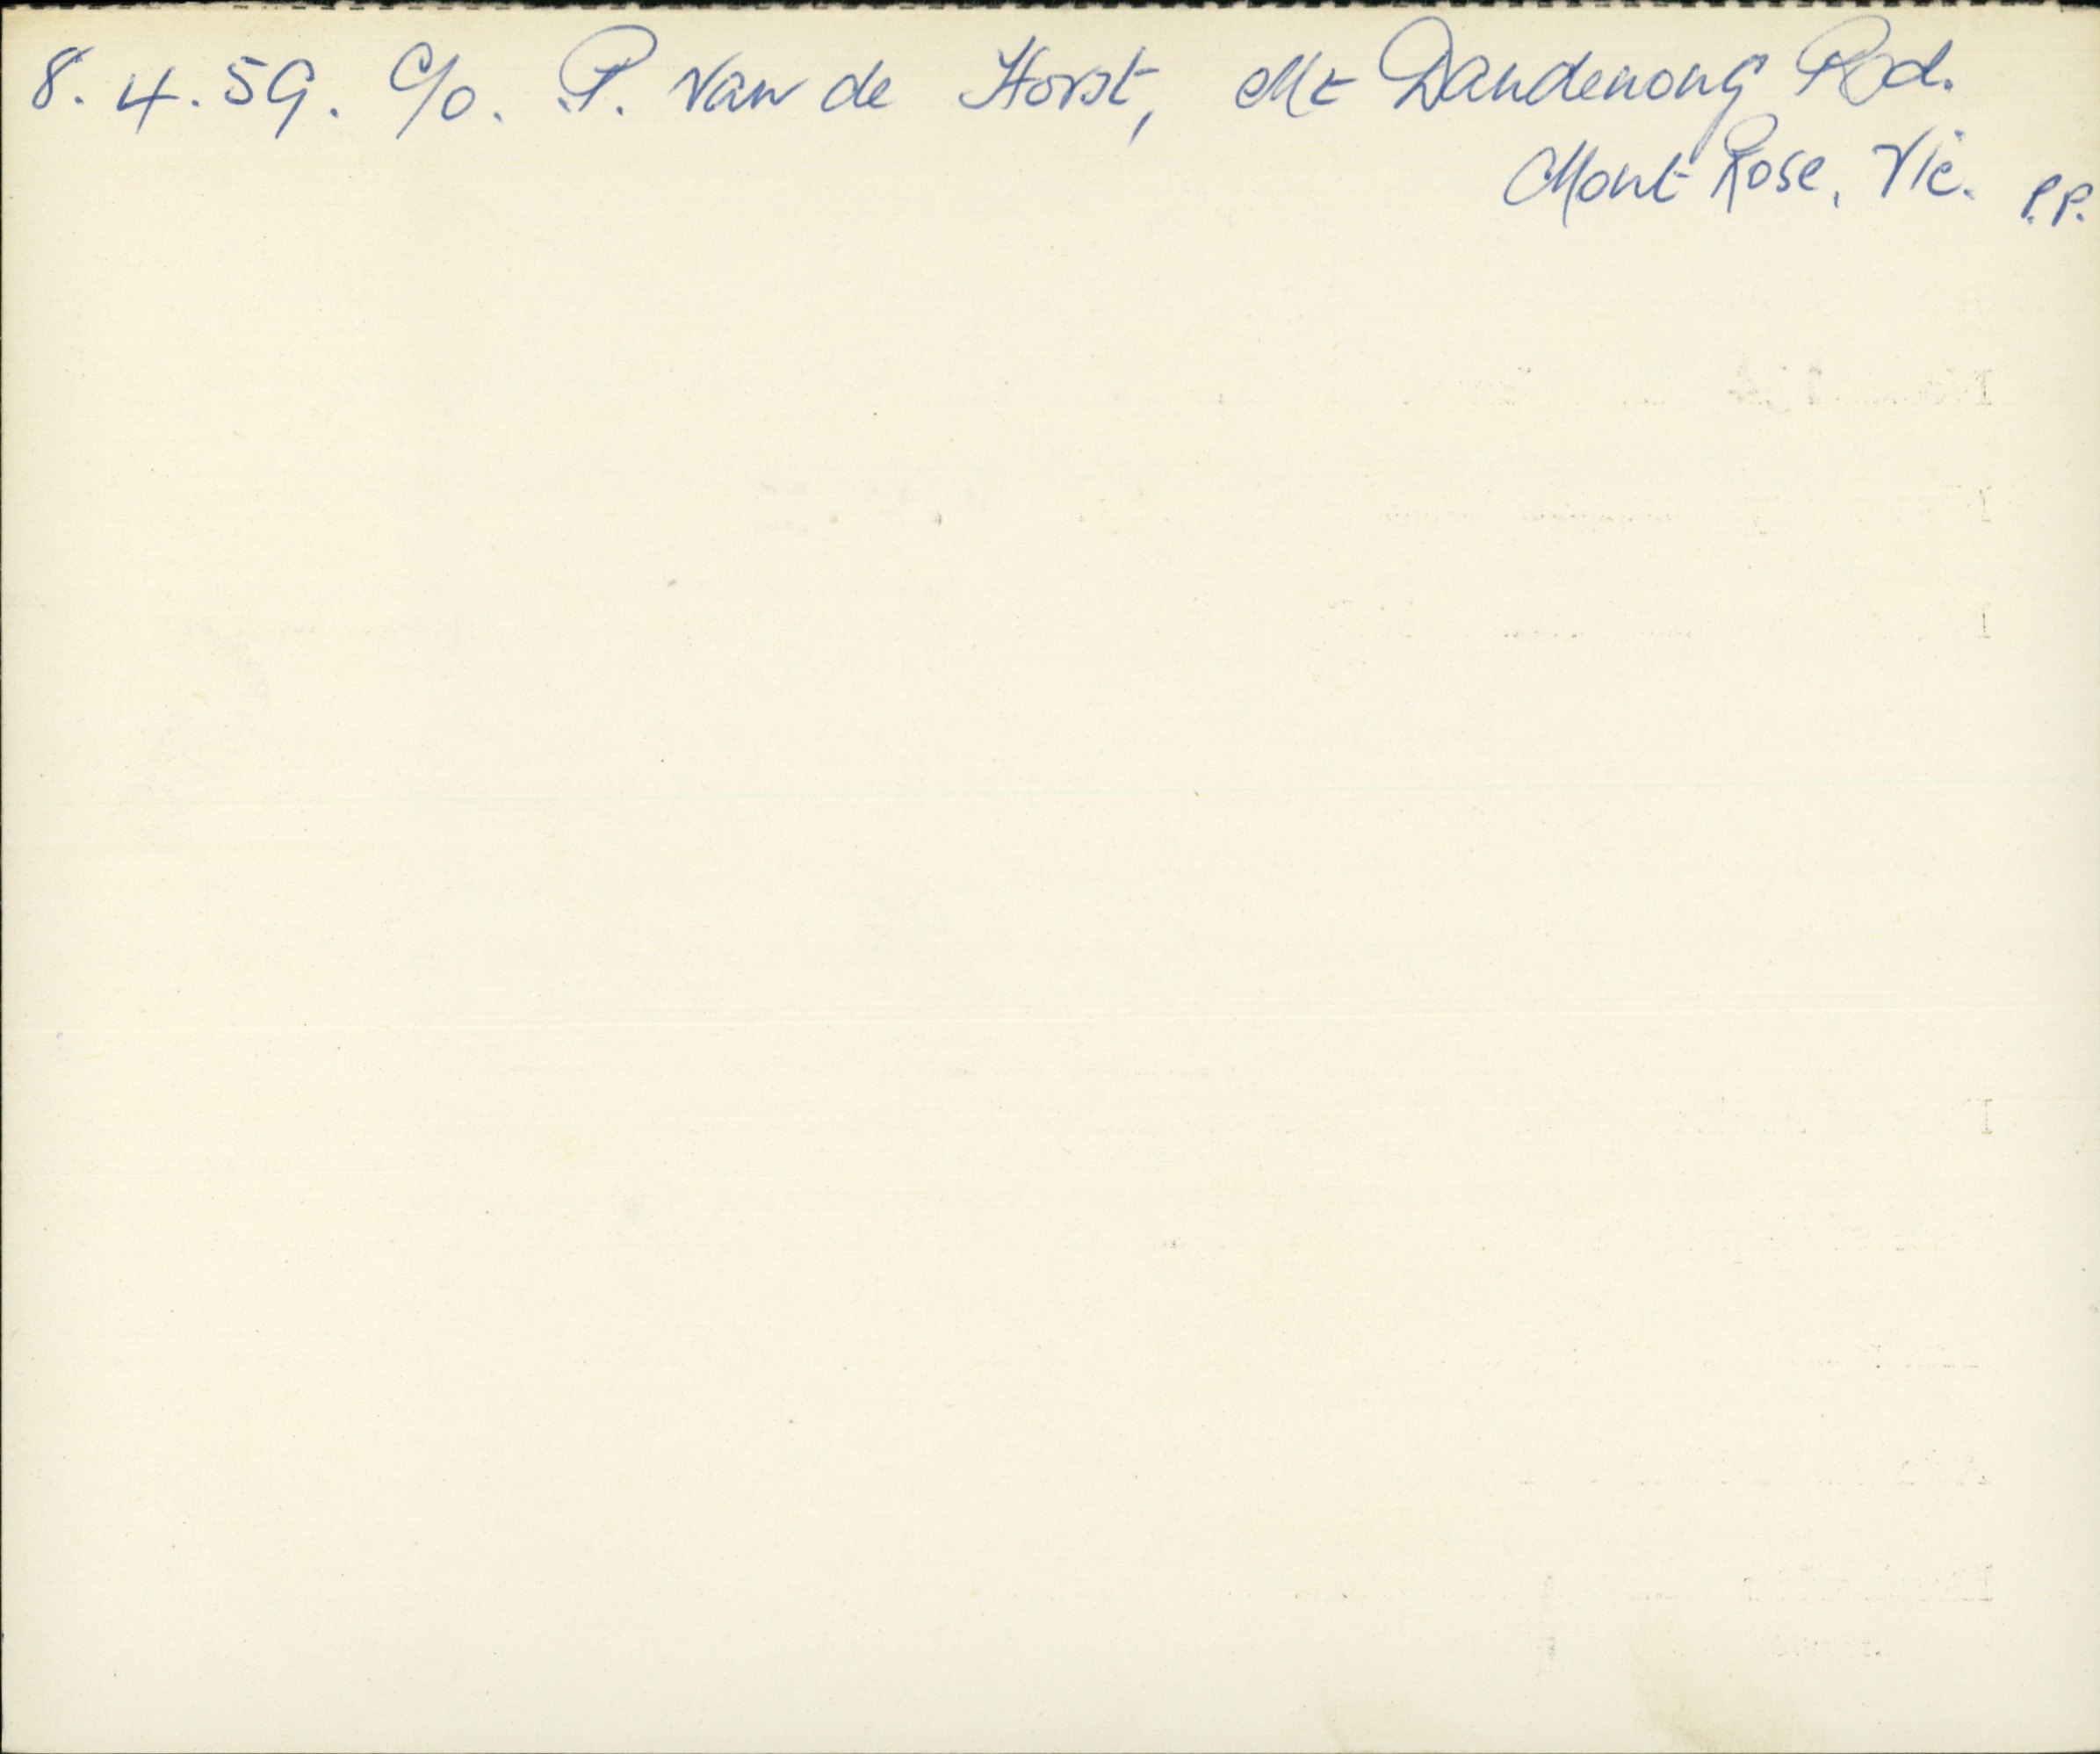 8.4.59. C/o. P. Van de Horst, Mt Dandenong Rd.
Mont Rose, Vic. P.P.